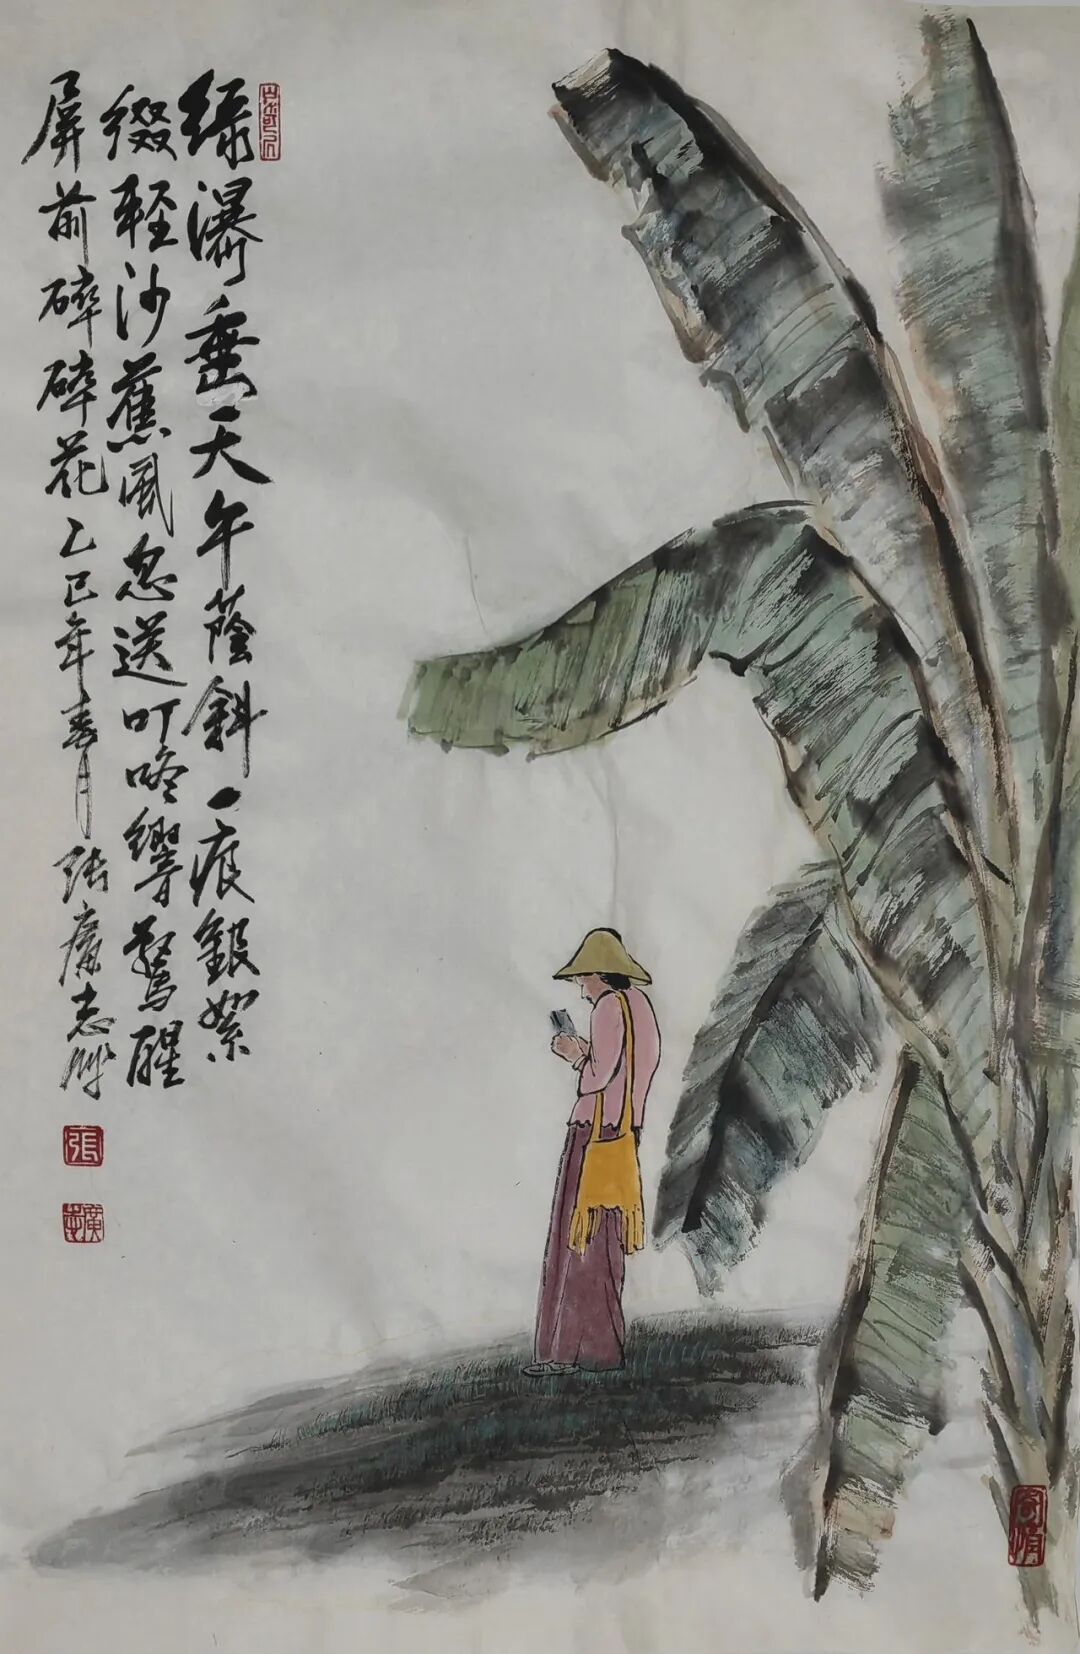 绿瀑垂天午蔭斜一痕銀絮
缀輕沙蕉風忽送叮咚響驚醒
屏前碎碎花乙巳年春月張廣志
張
廣志